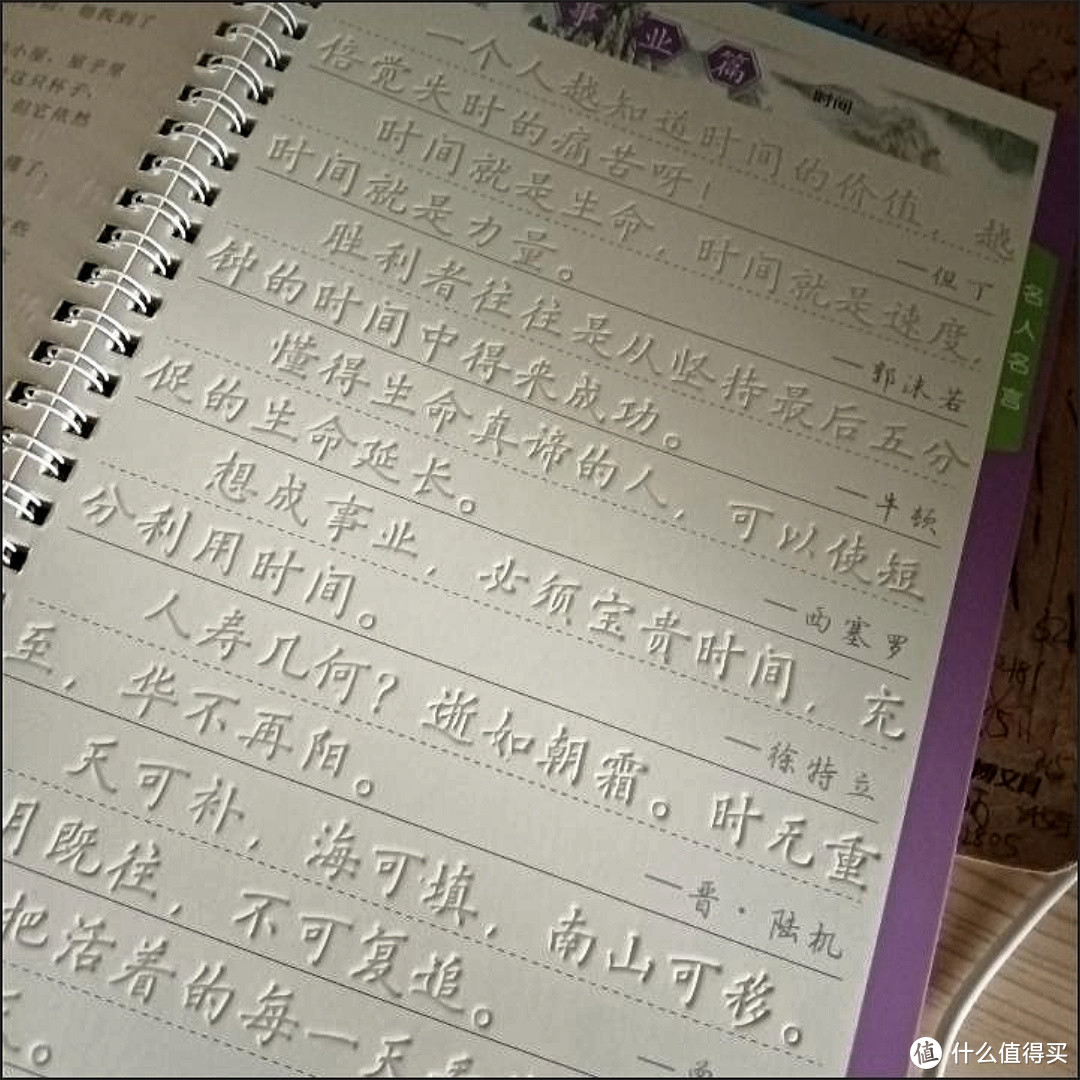 事业篇
时间
一个人越知道时间的价值，越
倍觉失时的痛苦呀！
—但丁
时间就是生命，时间就是速度，
时间就是力量。
—郭沫若
胜利者往往是从坚持最后五分
钟的时间中得来成功。
—牛顿
懂得生命真谛的人，可以使短
促的生命延长。
—西塞罗
想成事业，必须宝贵时间，充
分利用时间。
—徐特立
人寿几何？逝如朝霜。时无重
至，华不再阳。
—晋·陆机
天可补，海可填，南山可移。
月既往，不可复追。
把活着的每一天
名人名言
值 什么值得买